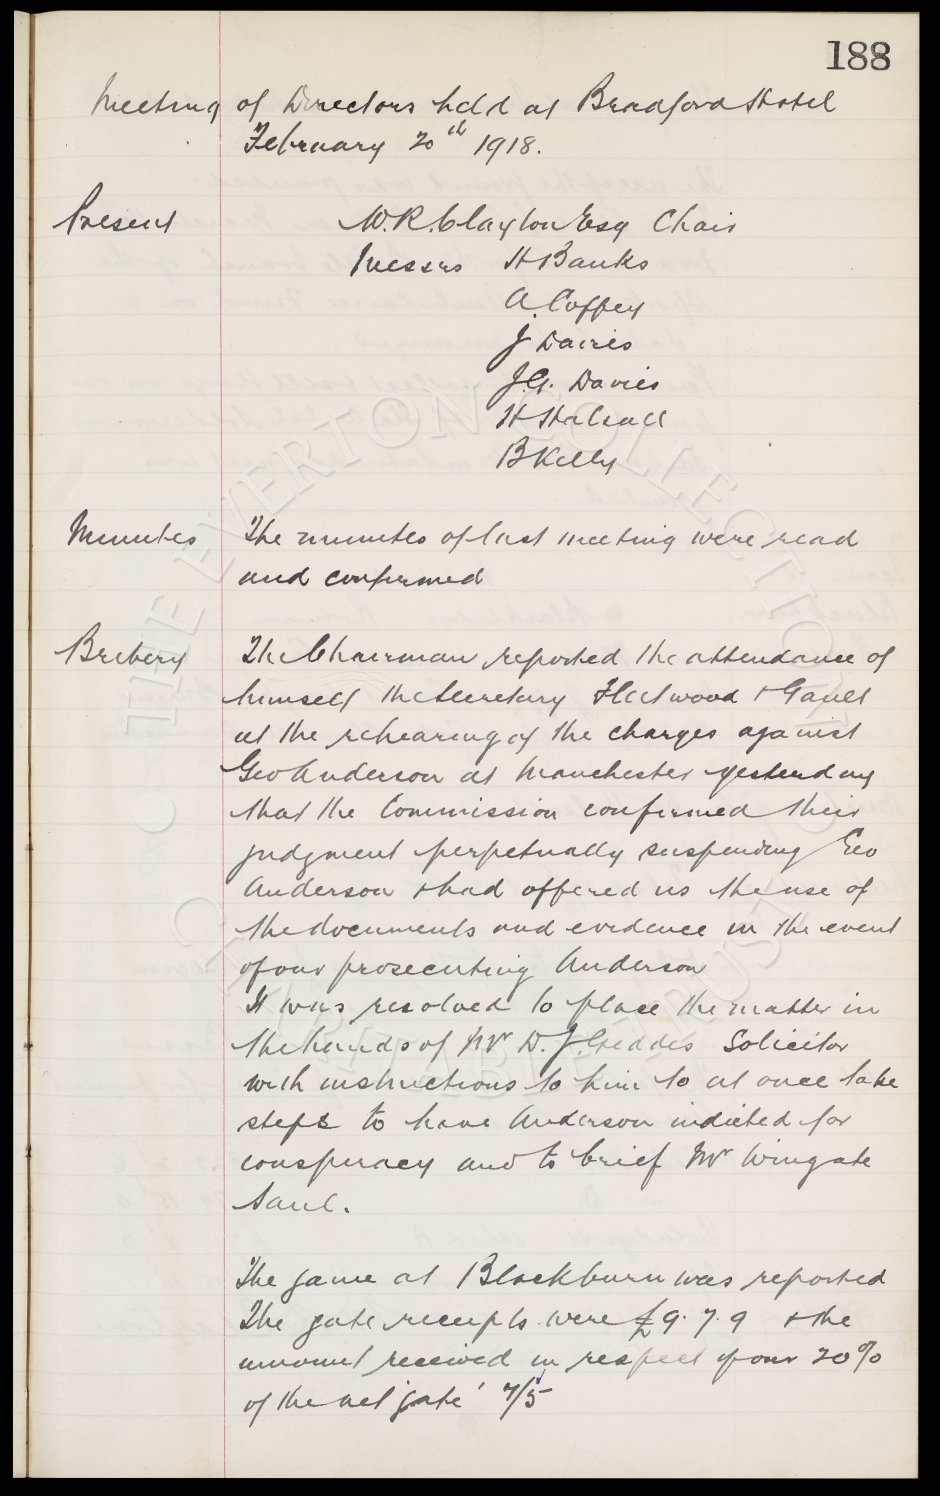 188
Meeting of Directors held at Bradford Hotel
February 20th 1918.
Present W.R. Clayton Esq Chair
Messrs H Banks
A. Coffey
J Davies
J.G. Davies
H Halsall
B Kelly
Minutes The minutes of last meeting were read
and confirmed
Bribery The Chairman reported the attendance of
himself the Secretary Fleetwood & Gault
at the rehearing of the charges against
Geo Anderson at Manchester yesterday
that the Commission confirmed their
judgment perpetually suspending Geo
Anderson & had offered us the use of
the documents and evidence in the event
of our prosecuting Anderson
It was resolved to place the matter in
the hands of Mr D. J. Geddes Solicitor
with instructions to him to at once take
steps to have Anderson indicted for
conspiracy and to brief Mr Wingate
Saul.
The game at Blackburn was reported
The gate receipts were £9. 7. 9 & the
amount received in respect of our 20%
of the net 'gate' 7/5
THE EVERTON COLLECTION CHARITABLE TRUST